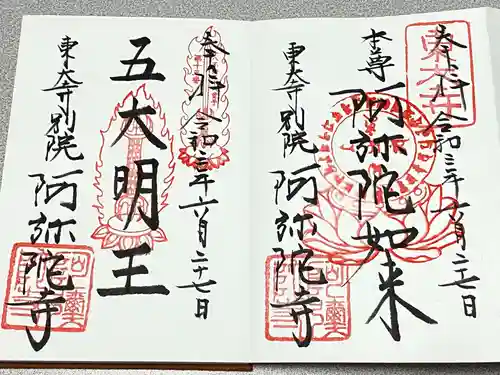 奉拝 令和三年六月二十七日
本尊 阿弥陀如来
東大寺別院 阿弥陀寺
奉拝 令和三年六月二十七日
五大明王
東大寺別院 阿弥陀寺